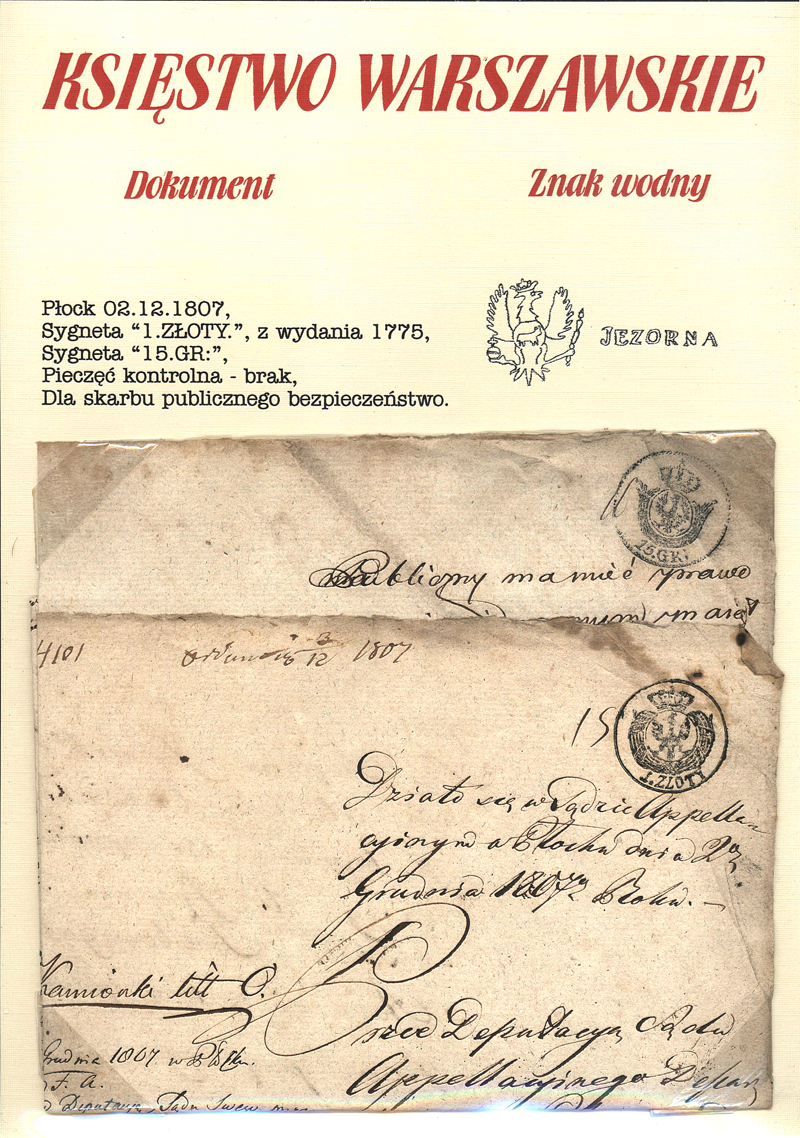 KSIĘSTWO WARSZAWSKIE
Dokument
Znak wodny
Płock 02.12.1807,
Sygneta “1.ZŁOTY.”, z wydania 1775,
Sygneta “15.GR:”,
Pieczęć kontrolna - brak,
Dla skarbu publicznego bezpieczeństwo.
JEZORNA
15.GR:
Publiczny ma mieć sprawe
4101
12 1807
15
1.ZŁOTY
Działo się w Sądzie Appella-
cyinym w Płocku dnia 2
Grudnia 1807 Roku. -
Kamionki litt C.
Przed Deputacyą Sądu
Grudnia 1807 w
Appellacyinego
F. A.
Deputacya Sądu